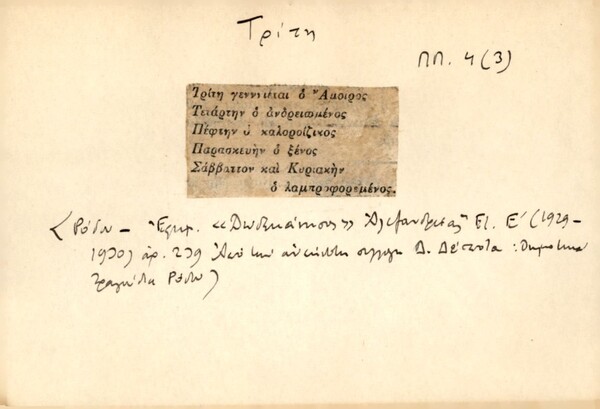 Τρίτη
ΠΠ. 4 (3)
Τρίτη γεννιέται ὁ Ἄμοιρος
Τετάρτην ὁ ἀνδρειωμένος
Πέφτην ὁ καλοροίζικος
Παρασκευὴν ὁ ξένος
Σάββατον καὶ Κυριακὴν
ὁ λαμπροφορεμένος.
(Ρόδου – Ἐφημ. «Δωδεκάνησος» Ἀλεξανδρείας Ἔτ. Ε΄ (1929-
1930) ἀρ. 239 Ἀπὸ τὴν ἀνέκδοτη συλλογὴ Δ. : Δημοτικὰ
Τραγούδια Ρόδου)